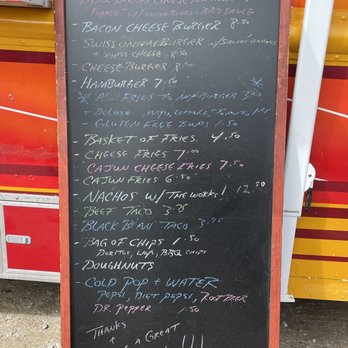 - BACON CHEESE BURGER 8.50
- SWISS ONION BURGER w/
+ SWISS CHEESE 8.50
- CHEESE BURGER 8.00
- HAMBURGER 7.50
* ADD FRIES TO *
- DELUXE
- GLUTEN FREE BUNS 1.50
- BASKET OF FRIES 4.50
- CHEESE FRIES 7.00
CAJUN CHEESE FRIES 7.50
CAJUN FRIES 6.50
NACHOS w/ THE WORKS! 12.50
BEEF TACO 3.75
BLACK BEAN TACO 3.75
- BAG OF CHIPS 1.50
DORITOS, LAYS, BBQ CHIPS
- DOUGHNUTS
- COLD POP + WATER
PEPSI, DIET PEPSI, ROOT BEER
DR. PEPPER 1.50
THANKS
+ A GREAT
!!!